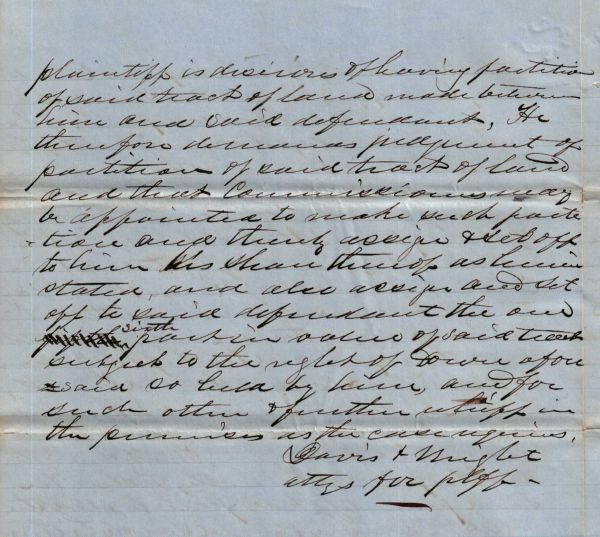 plaintiff is desirous of having partition
of said tract of land made between
him and said defendant, He
therefore demands judgment of
partition of said tract of land
and that Commissioners may
be appointed to make such parti
tion and thereby assign & set off
to him his share thereof as herein
stated, and also assign and set
off to said defendant the one
sixth part in value of said tract
subject to the right of Dower afore
said so held by him, and for
such other & further relief in
the premises as the case requires.
Davis & Wright
attys for plff -